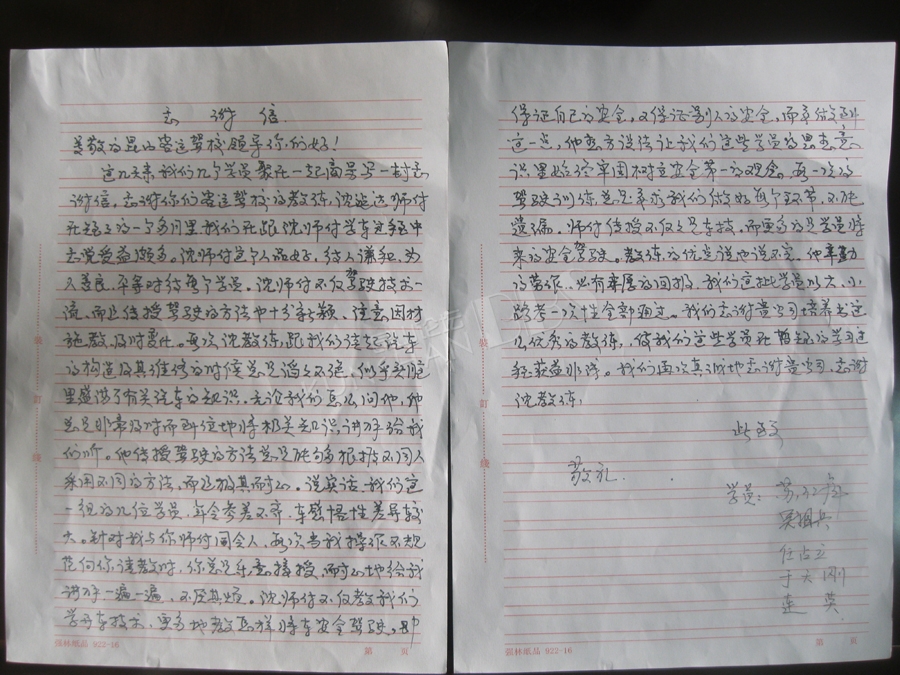 感谢信
尊敬的昆山客运驾校领导你们好！
这几天来,我们九个学员聚在一起商量写一封感
谢信。感谢你们客运驾校的教练,沈 师付
在过去的一个多月里我们在跟沈师付学车过程中
去说受益颇多。沈师付这个人品好,待人谦和,为
人善良,平等对待每个学员。沈师付不仅驾驶技术一
流,而且传授驾驶的方法也十分新颖、注意因材
施教,及时责任。每次沈教练跟我们谈起汽车
的构造及其维修的时候总是滔滔不绝,似乎头脑
里盛满了有关汽车的知识,无论我们怎么问他,他
总是非常及时而到位地将相关知识讲解给我
们听。他传授驾驶的方法总是能够根据不同人
采用不同的方法,而且极其耐心。说实话,我们这
一组的九位学员,年令参差不齐,车感悟性差异较
大。针对我与你师付同令人,每次当我操作不规
范向你请教时,你总是乐意接授,耐心地给我
讲解一遍一遍,不厌其烦。沈师付不仅教我们
学开车技术,更多地教怎样将车安全驾驶。即
保证自己的安全,又保证别人的安全,而章做到
这一点,他想方设法让我们这些学员的思想意
识里始终牢固树立安全第一的观念。每一次的
驾驶训练总是要求我们做好每个环节,不能
遗漏。师付传授不仅是车技,而更多的是学员将
来的安全驾驶。教练的优点说也说不完。他辛勤
的劳作,必有丰厚的回报。我们这批学员以大、小
路考一次性全部通过。我们感谢贵公司培养出这
么优秀的教练,使我们这些学员在 的学习过
程获益非浅。我们再次真诚地感谢贵公司,感谢
沈教练,
此致
敬礼
学员:
任占立
于大刚
建英
装
订
线
装
订
线
强林纸品 922-16
第 页
强林纸品 922-16
第 页